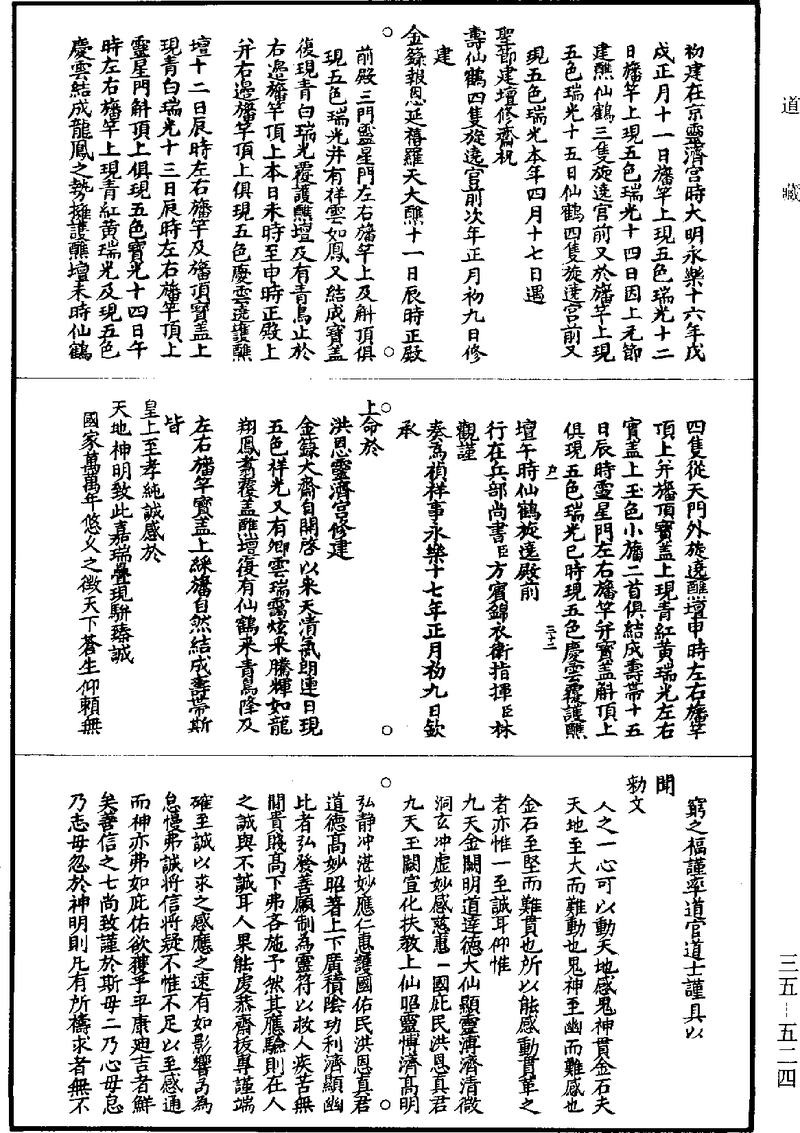 道藏
初建在京靈濟宫時大明永樂十六年戊
戌正月十一日旛竿上現五色瑞光十二
日旛竿上現五色瑞光十四日因上元節
建醮仙鶴三隻旋遶宫前又於旛竿上現
五色瑞光十五日仙鶴四隻旋遶宫前又
現五色瑞光本年四月十七日遇
聖節建壇修齋祝
壽仙鶴四隻旋遶宫前次年正月初九日修
建
金籙報恩延禧羅天大醮十一日辰時正殿
前殿三門靈星門左右旛竿上及斛頂俱
現五色瑞光并有祥雲如鳳又結成寶蓋
復現青白瑞光覆護醮壇及有青鳥止於
右邊旛竿頂上本日未時至申時正殿上
并右邊旛竿頂上俱現五色慶雲遶護醮
壇十二日辰時左右旛竿及旛頂寶蓋上
現青白瑞光十三日辰時左右旛竿頂上
靈星門斛頂上俱現五色寶光十四日午
時左右旛竿上現青紅黄瑞光及現五色
慶雲結成龍鳳之勢擁護醮壇未時仙鶴
四隻從天門外旋遶醮壇申時左右旛竿
頂上并旛頂寶蓋上現青紅黄瑞光左右
寶蓋上玉色小旛二首俱結成壽帶十五
日辰時靈星門左右旛竿并寶蓋斛頂上
俱現五色瑞光巳時現五色慶雲覆護醮
壇午時仙鶴旋遶殿前
行在兵部尚書臣方賓錦衣衛指揮臣林
觀謹
奏爲禎祥事永樂十七年正月初九日欽
承
上命於
洪恩靈濟宫修建
金籙大齋自開啓以来天清氣朗連日現
五色祥光又有卿雲瑞靄炫来騰輝如龍
翔鳳翥覆蓋醮壇復有仙鶴来青鳥降及
左右旛竿寶蓋上綵旛自然結成壽帶斯
皆
皇上至孝純誠感於
天地神明致此嘉瑞疊現駢臻誠
國家萬萬年悠久之徵天下蒼生仰賴無
窮之福謹率道官道士謹具以
聞
勑文
人之一心可以動天地感鬼神貫金石夫
天地至大而難動也鬼神至幽而難感也
金石至堅而難貫也所以能感動貫革之
者亦惟一至誠耳仰惟
九天金闕明道達德大仙顯靈溥濟清微
洞玄冲虚妙感慈惠一國庇民洪恩真君
九天玉闕宣化扶教上仙昭靈博濟高明
弘静冲湛妙應仁惠護國佑民洪恩真君
道德髙妙昭著上下廣積陰功利濟顯幽
比者弘發善願制為靈符以救人疾苦無
間貴賤高下弗吝施予然其應驗則在人
之誠與不誠耳人果能虔恭齋抜專謹端
確至誠以求之感應之速有如影響苟為
怠慢弗誠將信將疑不惟不足以至感通
而神亦弗如庇佑欲獲乎平康迪吉者鮮
矣善信之士尚致謹於斯毋二乃心毋怠
乃志毋忽於神明則凡有所禱求者無不
三五—五二四